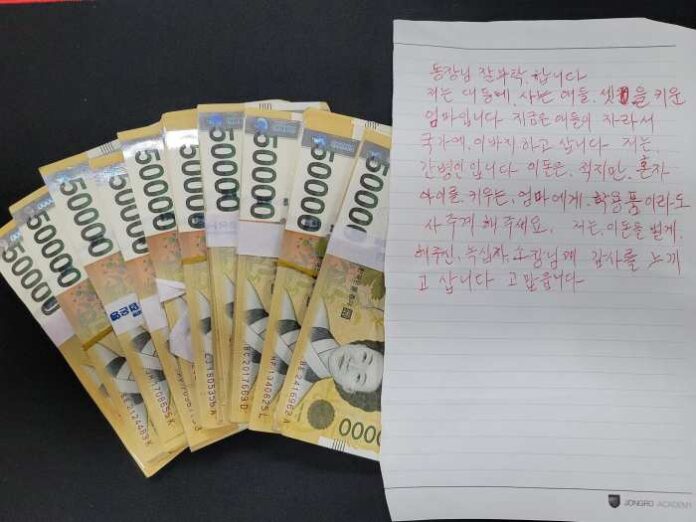 50000
50000
50000
50000
50000
50000
50000
50000
50000
50000
0000
EE2124483K
JK1708655K
BC2017663D
BE2416963A
동장님 잘 부탁 합니다
저는 대동에, 사는 애들, 셋을 키운
엄마입니다 지금은 애들이 자라서
국가에, 이바지하고 삽니다 저는,
간병인입니다 이돈은, 적지만, 혼자
아이를, 키우는, 엄마에게, 학용품이라도
사주게 해 주세요, 저는, 이돈을 벌게,
해주신, 녹십자, 소장님께 감사를 느끼
고 삽니다 고맙습니다
JONGRO ACADEMY